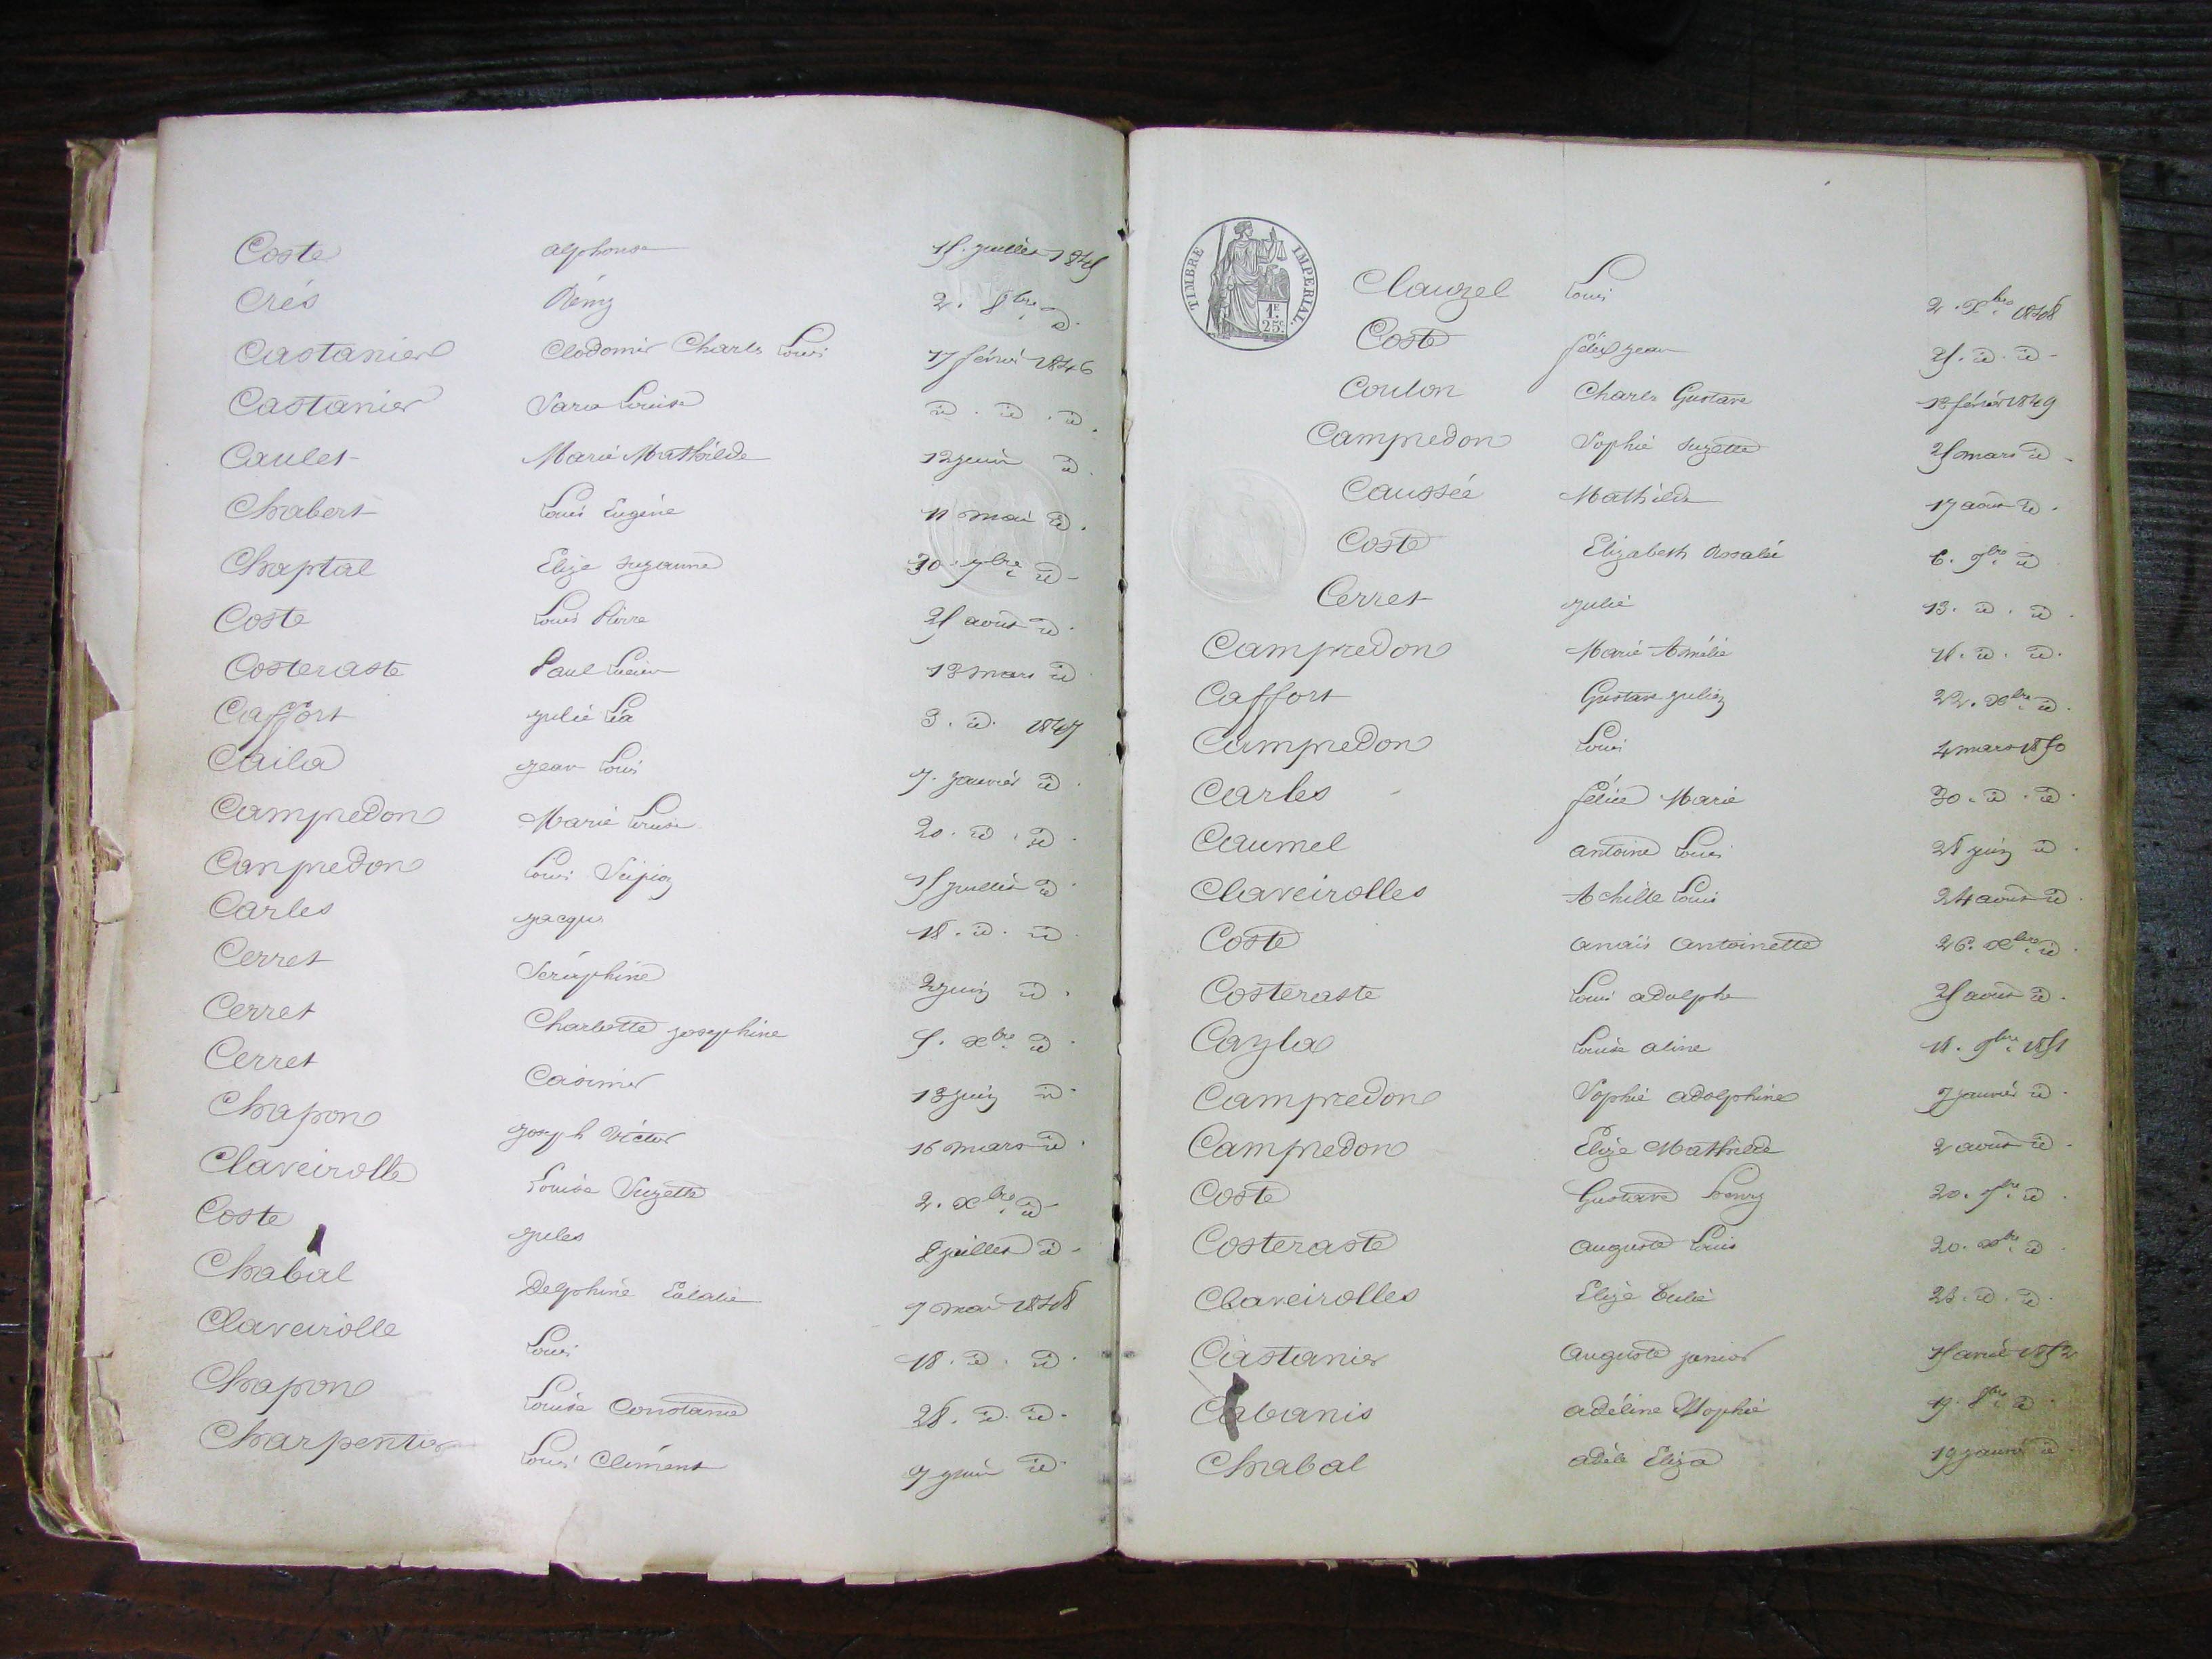 Coste alphonse 15. juillet 1845
Crés Rémy 2. 8bre id.
Castanier Clodomir Charles Louis 17 février 1846
Castanier Sara Louise id. id. id.
Caulet Marie Mathilde 12 juin id.
Chabert Louis Eugène 11 mai id.
Chaptal Elize Suzanne 30. 7bre id
Coste Louis Pierre 25 août id.
Costeraste Paul Lucien 13 mars id
Caffort julie Léa 3. id. 1847
Caila jean Louis 7. janvier id.
Campredon Marie Louise 20. id. id.
Canpredon Louis Scipion 15 juillet id.
Carles jacques 18. id. id
Cerret Séraphine 2 juin id.
Cerret Charlotte josephine 5. xbre id.
Cerret Casimir 13 juin id.
Chapon joseph Victor 16 mars id.
Claveirolle Louise Suzette 2. xbre id
Coste jules 8 juillet id
Chabal Delphine Eulalie 7 mai 1848
Claveirolle Louis 18. id. id.
Chapon Louise Constance 28. id. id.
Charpentier Louis Clément 7 juin id.
TIMBRE IMPERIAL.
1F. 25c.
Clauzel Louis 2. xbre 1848
Coste félix jean 25. id. id
Coulon Charles Gustave 13 février 1849
Campredon Sophie Suzette 25 mars id
Caussée Mathilde 17 août id.
Coste Elizabeth Rosalie 6. 9bre id
Cerret julie 13. id. id.
Campredon Marie Amélie 16. id. id.
Caffort Gustave julien 22. xbre id.
Campredon Louis 4 mars 1850
Carles félicie Marie 30. id. id.
Caumel antoine Louis 28 juin id.
Claveirolles Achille Louis 24 août id.
Coste anaïs antoinette 26. xbre id.
Costeraste Louis adolphe 25 août id.
Cayla Louise aline 18. 9bre 1851
Campredon Sophie adolphine 7 janvier id.
Campredon Elize Mathilde 2 août id.
Coste Gustave henry 20. 7bre id.
Costeraste auguste Louis 20. xbre id.
Claveirolles Elize Julie 28. id. id.
Castanier auguste junior 15 avril 1852
Cabanis adéline Sophie 19. 8bre id.
Chabal adèle Eliza 19 janvier id.